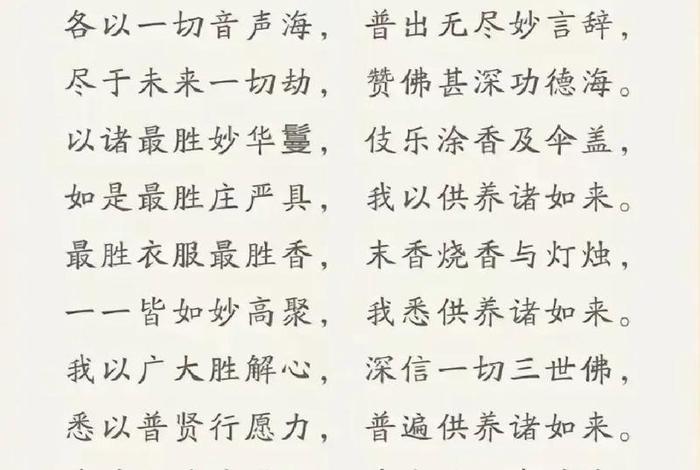 各以一切音声海， 普出无尽妙言辞，
尽于未来一切劫， 赞佛甚深功德海。
以诸最胜妙华鬘， 伎乐涂香及伞盖，
如是最胜庄严具， 我以供养诸如来。
最胜衣服最胜香， 末香烧香与灯烛，
一一皆如妙高聚， 我悉供养诸如来。
我以广大胜解心， 深信一切三世佛，
悉以普贤行愿力， 普遍供养诸如来。